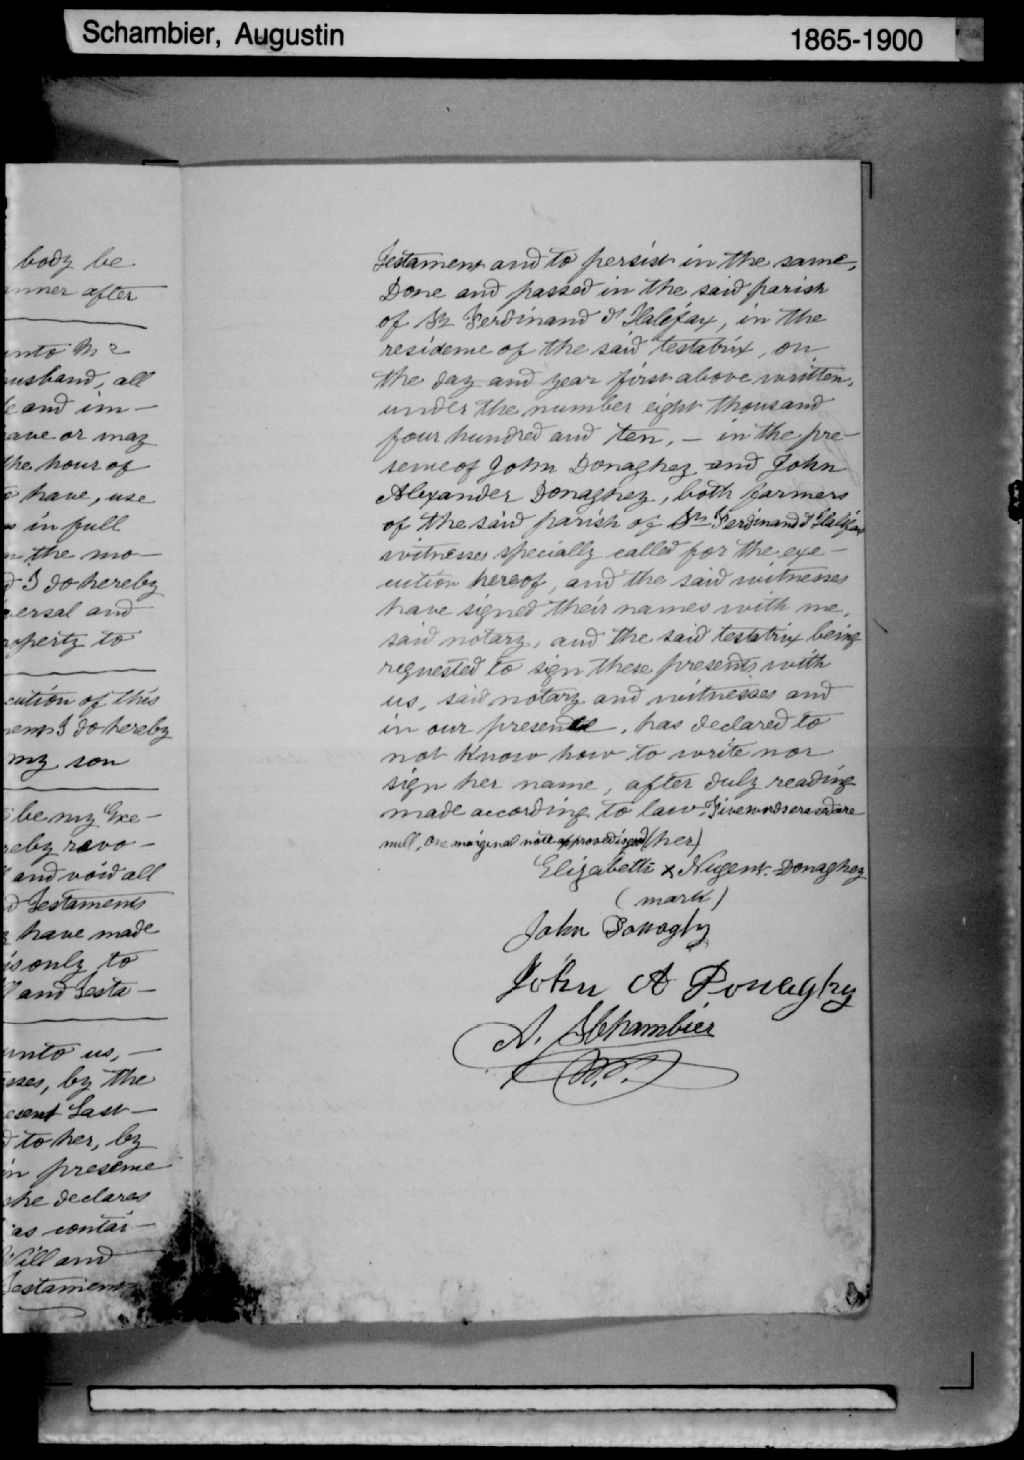 Schambier, Augustin
1865-1900
body be
nner after
unto Mr
usband, all
le and im-
ave or may
the hour of
e have, use
in full
n the mo-
d I do hereby
versal and
operty to
cution of this
ment I do hereby
my son
be my Exe-
reby revo-
and void all
d Testaments
have made
is only to
and Testa-
unto us,-
sses, by the
esent Last-
d to her, by
in presence
she declares
as contai-
Will and
Testament
Testament and to persist in the same,
Done and passed in the said parish
of St Ferdinand d'Halifax, in the
residence of the said testatrix, on
the day and year first above written,
under the number eight thousand
four hundred and ten, - in the pre-
sence of John Donaghey and John
Alexander Donaghey, both farmers
of the said parish of St Ferdinand d'Halifax
witnesses specially called for the exe-
cution hereof, and the said witnesses
have signed their names with me,
said notary, and the said testatrix being
requested to sign these presents with
us, said notary and witnesses and
in our presence, has declared to
not know how to write nor
sign her name, after duly reading
made according to law. Five words erased are
null, One marginal note approved is good (her)
Elizabeth x Nugent-Donaghey
(mark)
John Donaghy
John A Donaghy
A. Schambier
N.P.